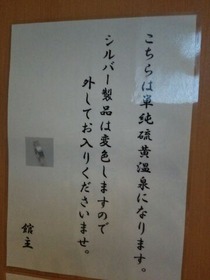 こちらは単純硫黄温泉になります。
シルバー製品は変色しますので
外してお入りくださいませ。
館主